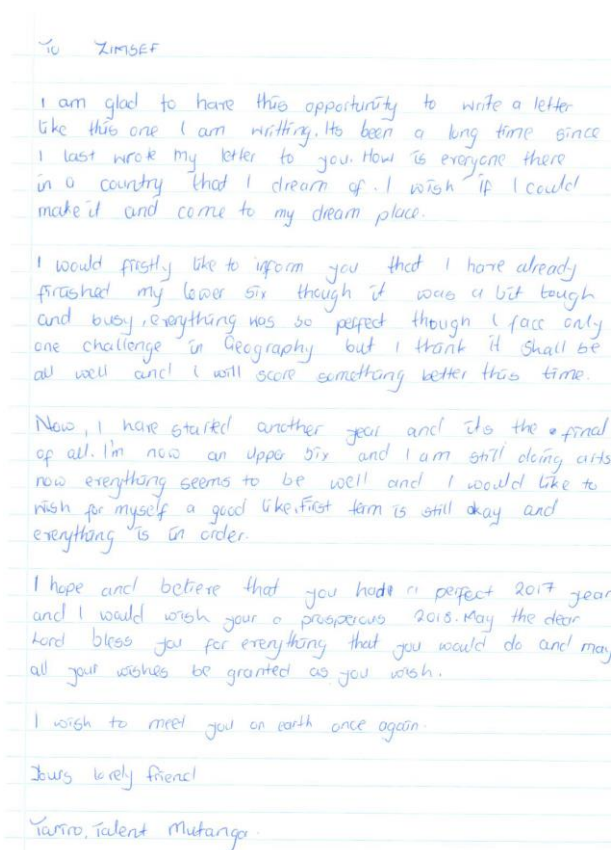 To ZIMSEF
I am glad to have this opportunity to write a letter
like this one I am writting. Its been a long time since
I last wrote my letter to you. How is everyone there
in a country that I dream of. I wish if I could
make it and come to my dream place.
I would firstly like to inform you that I have already
finished my lower six though it was a bit tough
and busy, everything was so perfect though I face only
one challenge in Geography but I think it shall be
all well and I will score something better this time.
Now, I have started another year and its the final
of all. I'm now an upper six and I am still doing arts
now everything seems to be well and I would like to
wish for myself a good like. First term is still okay and
everything is in order.
I hope and believe that you had a perfect 2017 year
and I would wish your a prosperous 2018. May the dear
Lord bless you for everything that you would do and may
all your wishes be granted as you wish.
I wish to meet you on earth once again.
Yours lovely friend
Tariro, Talent Mutanga.